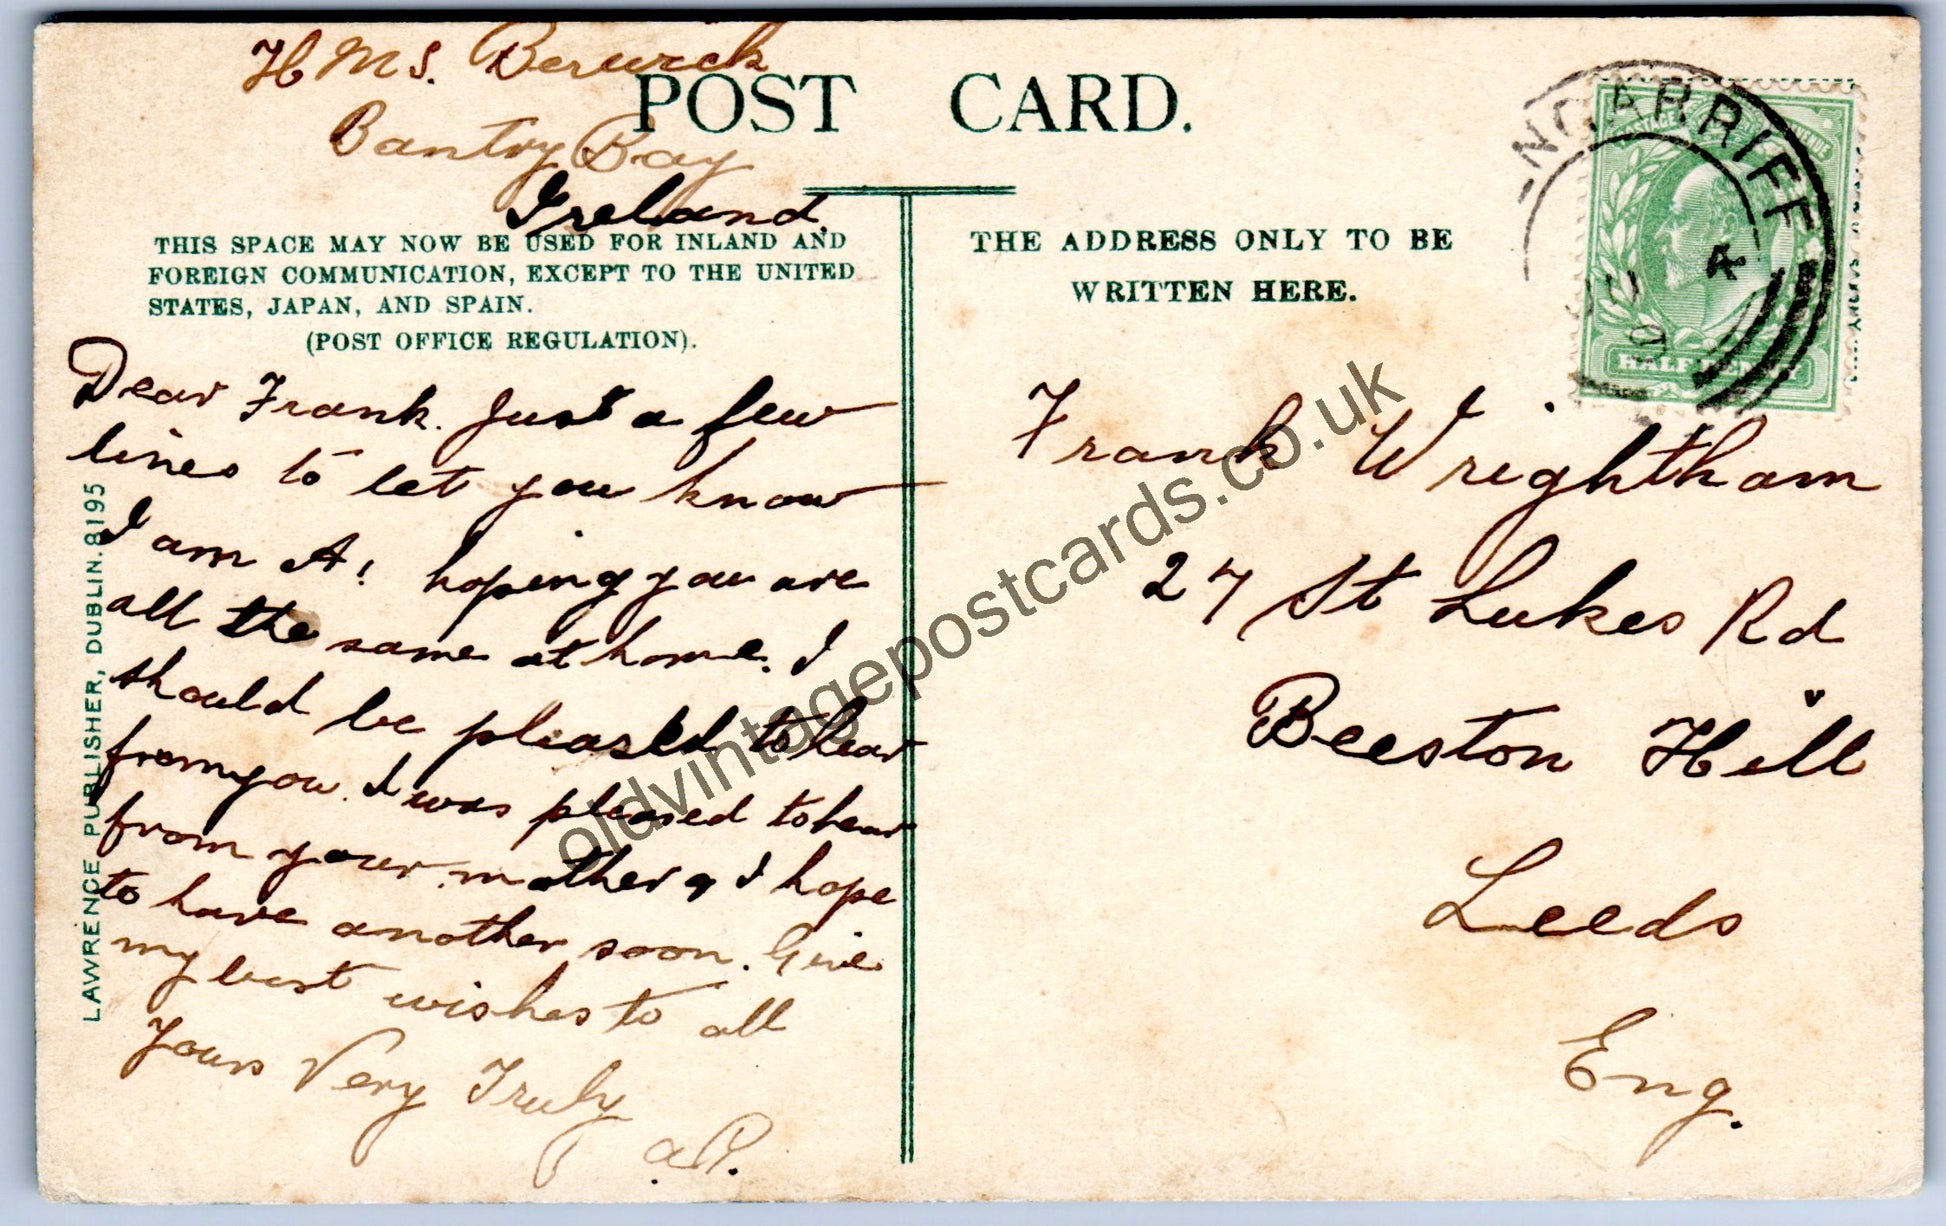 H M S. Berwick
Bantry Bay
Ireland.
POST CARD.
THIS SPACE MAY NOW BE USED FOR INLAND AND
FOREIGN COMMUNICATION, EXCEPT TO THE UNITED
STATES, JAPAN, AND SPAIN.
(POST OFFICE REGULATION).
Dear Frank. Just a few
lines to let you know
I am A1 hoping you are
all the same at home. I
should be pleased to hear
from you. I was pleased to hear
from your mother & I hope
to have another soon. Give
my best wishes to all
Yours Very Truly
LAWRENCE PUBLISHER, DUBLIN. 8195
THE ADDRESS ONLY TO BE
WRITTEN HERE.
NGARRIFF
JU 4
HALFPENNY
Frank Wrightham
27 St Lukes Rd
Beeston Hill
Leeds
Eng.
oldvintagepostcards.co.uk